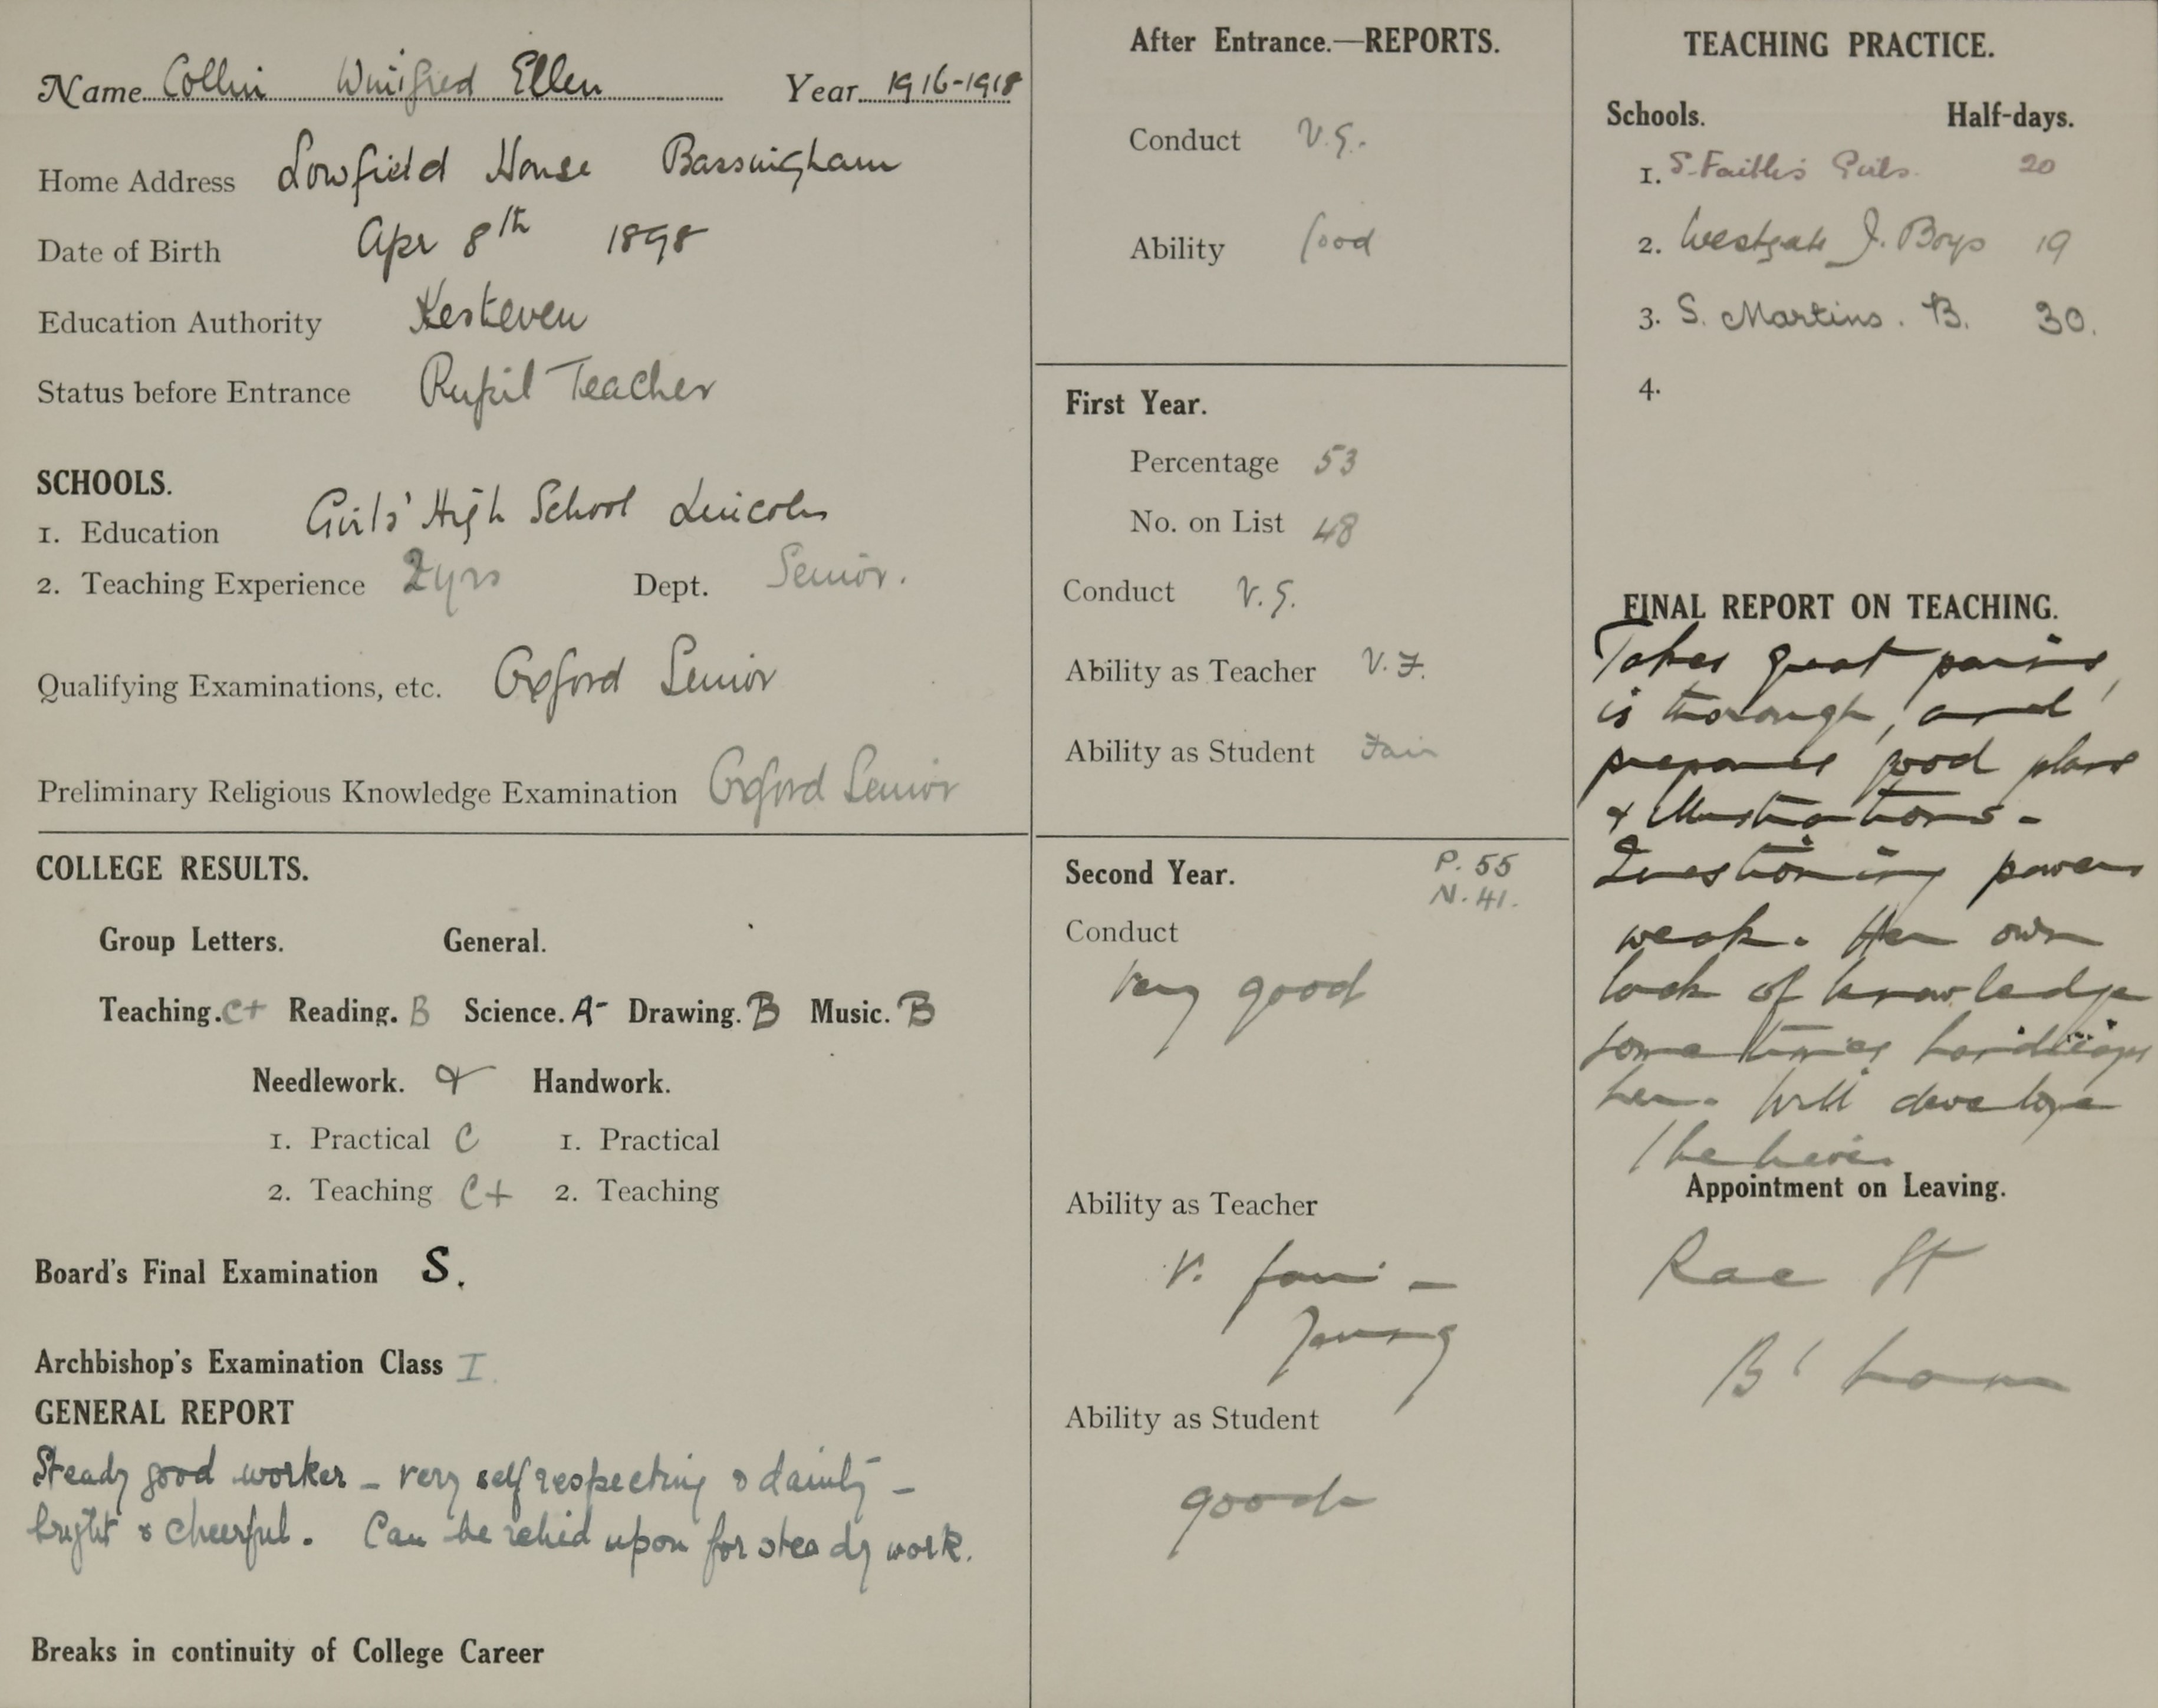 Name Collin Winifred Ellen Year 1916-1918
Home Address Lowfield House Bassingham
Date of Birth Apr 8th 1898
Education Authority Kesteven
Status before Entrance Pupil Teacher
SCHOOLS.
1. Education Girls' High School Lincoln
2. Teaching Experience 2 yrs Dept. Senior.
Qualifying Examinations, etc. Oxford Senior
Preliminary Religious Knowledge Examination Oxford Senior
COLLEGE RESULTS.
Group Letters. General.
Teaching. C+ Reading. B Science. A- Drawing. B Music. B
Needlework. & Handwork.
1. Practical C 1. Practical
2. Teaching C+ 2. Teaching
Board's Final Examination S.
Archbishop's Examination Class I.
GENERAL REPORT
Steady good worker - very self respecting & dainty -
bright & cheerful. Can be relied upon for steady work.
Breaks in continuity of College Career
After Entrance.—REPORTS.
Conduct V.G.
Ability Good
First Year.
Percentage 53
No. on List 48
Conduct V.G.
Ability as Teacher V.F.
Ability as Student Fair
Second Year. P. 55
N. 41.
Conduct
Very good
Ability as Teacher
V. fair -
Young
Ability as Student
good
TEACHING PRACTICE.
Schools. Half-days.
1. S. Faith's Girls. 20
2. Westgate J. Boys 19
3. S. Martins. B. 30.
4.
FINAL REPORT ON TEACHING.
Takes great pains,
is thorough, and
prepares good plans
& illustrations -
Questioning powers
weak. Her own
lack of knowledge
sometimes handicaps
her. Will develope
I believe.
Appointment on Leaving.
Rae St
B'ham